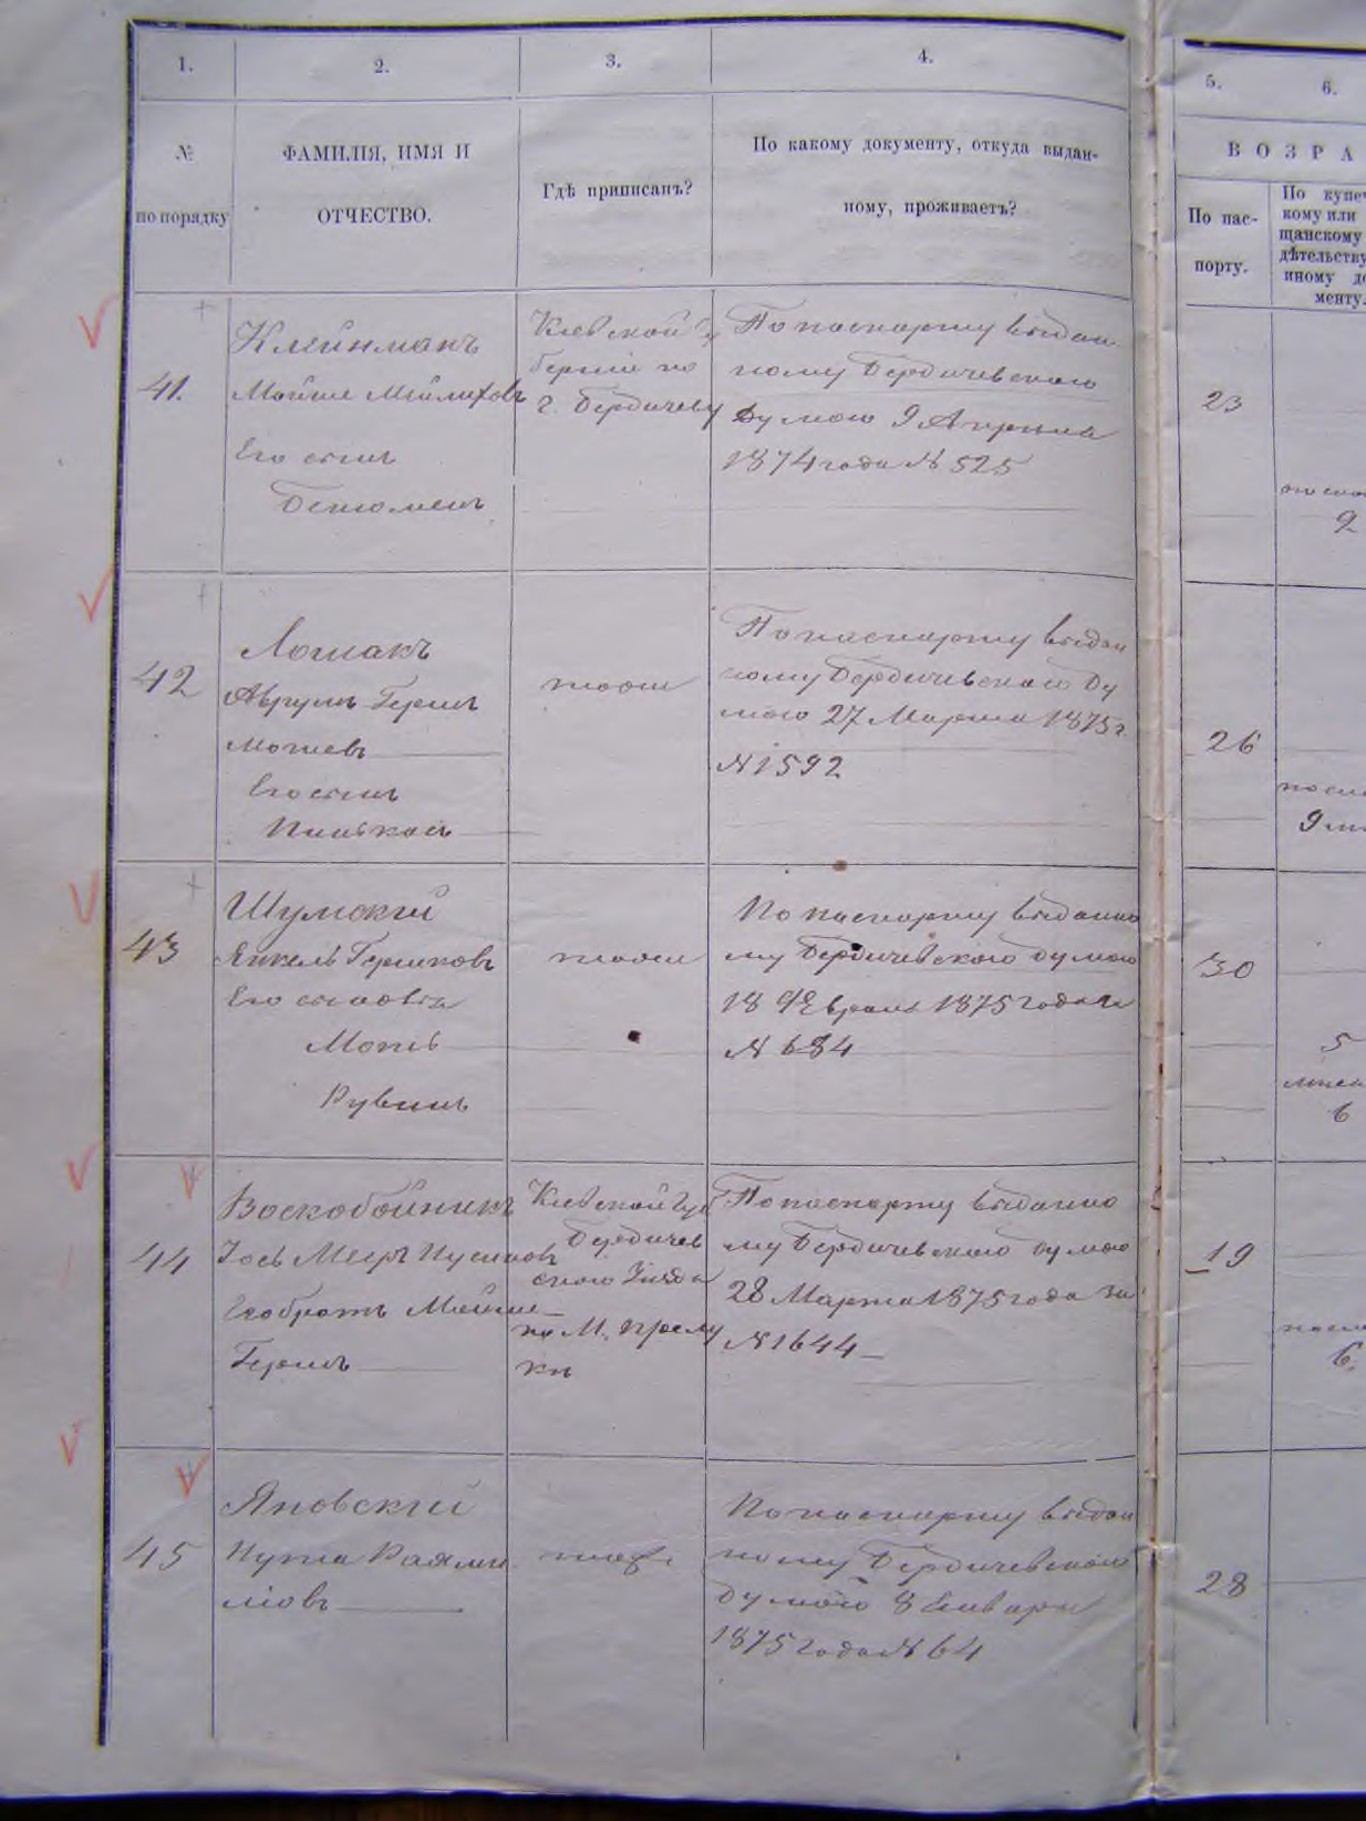 1.
2.
3.
4.
5.
6.
№
по порядку
ФАМИЛІЯ, ИМЯ И
ОТЧЕСТВО.
Гдѣ приписанъ?
По какому документу, откуда выдан-
ному, проживаетъ?
ВОЗРА
По пас-
порту.
По купеч
кому или
щанскому
дѣтельству
иному до
менту.
41.
Клейнманъ
Мойше Мейлиховъ
Его сынъ
Кіевской гу
берніи по
г. Бердичеву
По паспорту выдан
ному Бердичевскою
Думою 9 Апрѣля
1874 года № 525
23
2
42
Лошакъ
Аврумъ Гершъ
Мошевъ
Его сынъ
тоже
По паспорту выдан
ному Бердичевскою Ду
мою 27 Марта 1875 г.
№ 1592
26
9
43
Шумскій
Янкель Гершковъ
Его сыновья
Рувинъ
тоже
По паспорту выданно
му Бердичевскою думою
18 Февраля 1875 года
№ 684
30
5
6
44
Воскобойникъ
Іось Мееръ
Его братъ Мойше
Гершъ
Кіевской Губ
Бердичев
скаго Уѣзда
по М.
По паспорту выданно
му Бердичевскою думою
28 Марта 1875 года за
№ 1644
19
6
45
Яновскій
тоже
По паспорту выдан
ному Бердичевскою
думою 8 Января
1875 года № 64
28